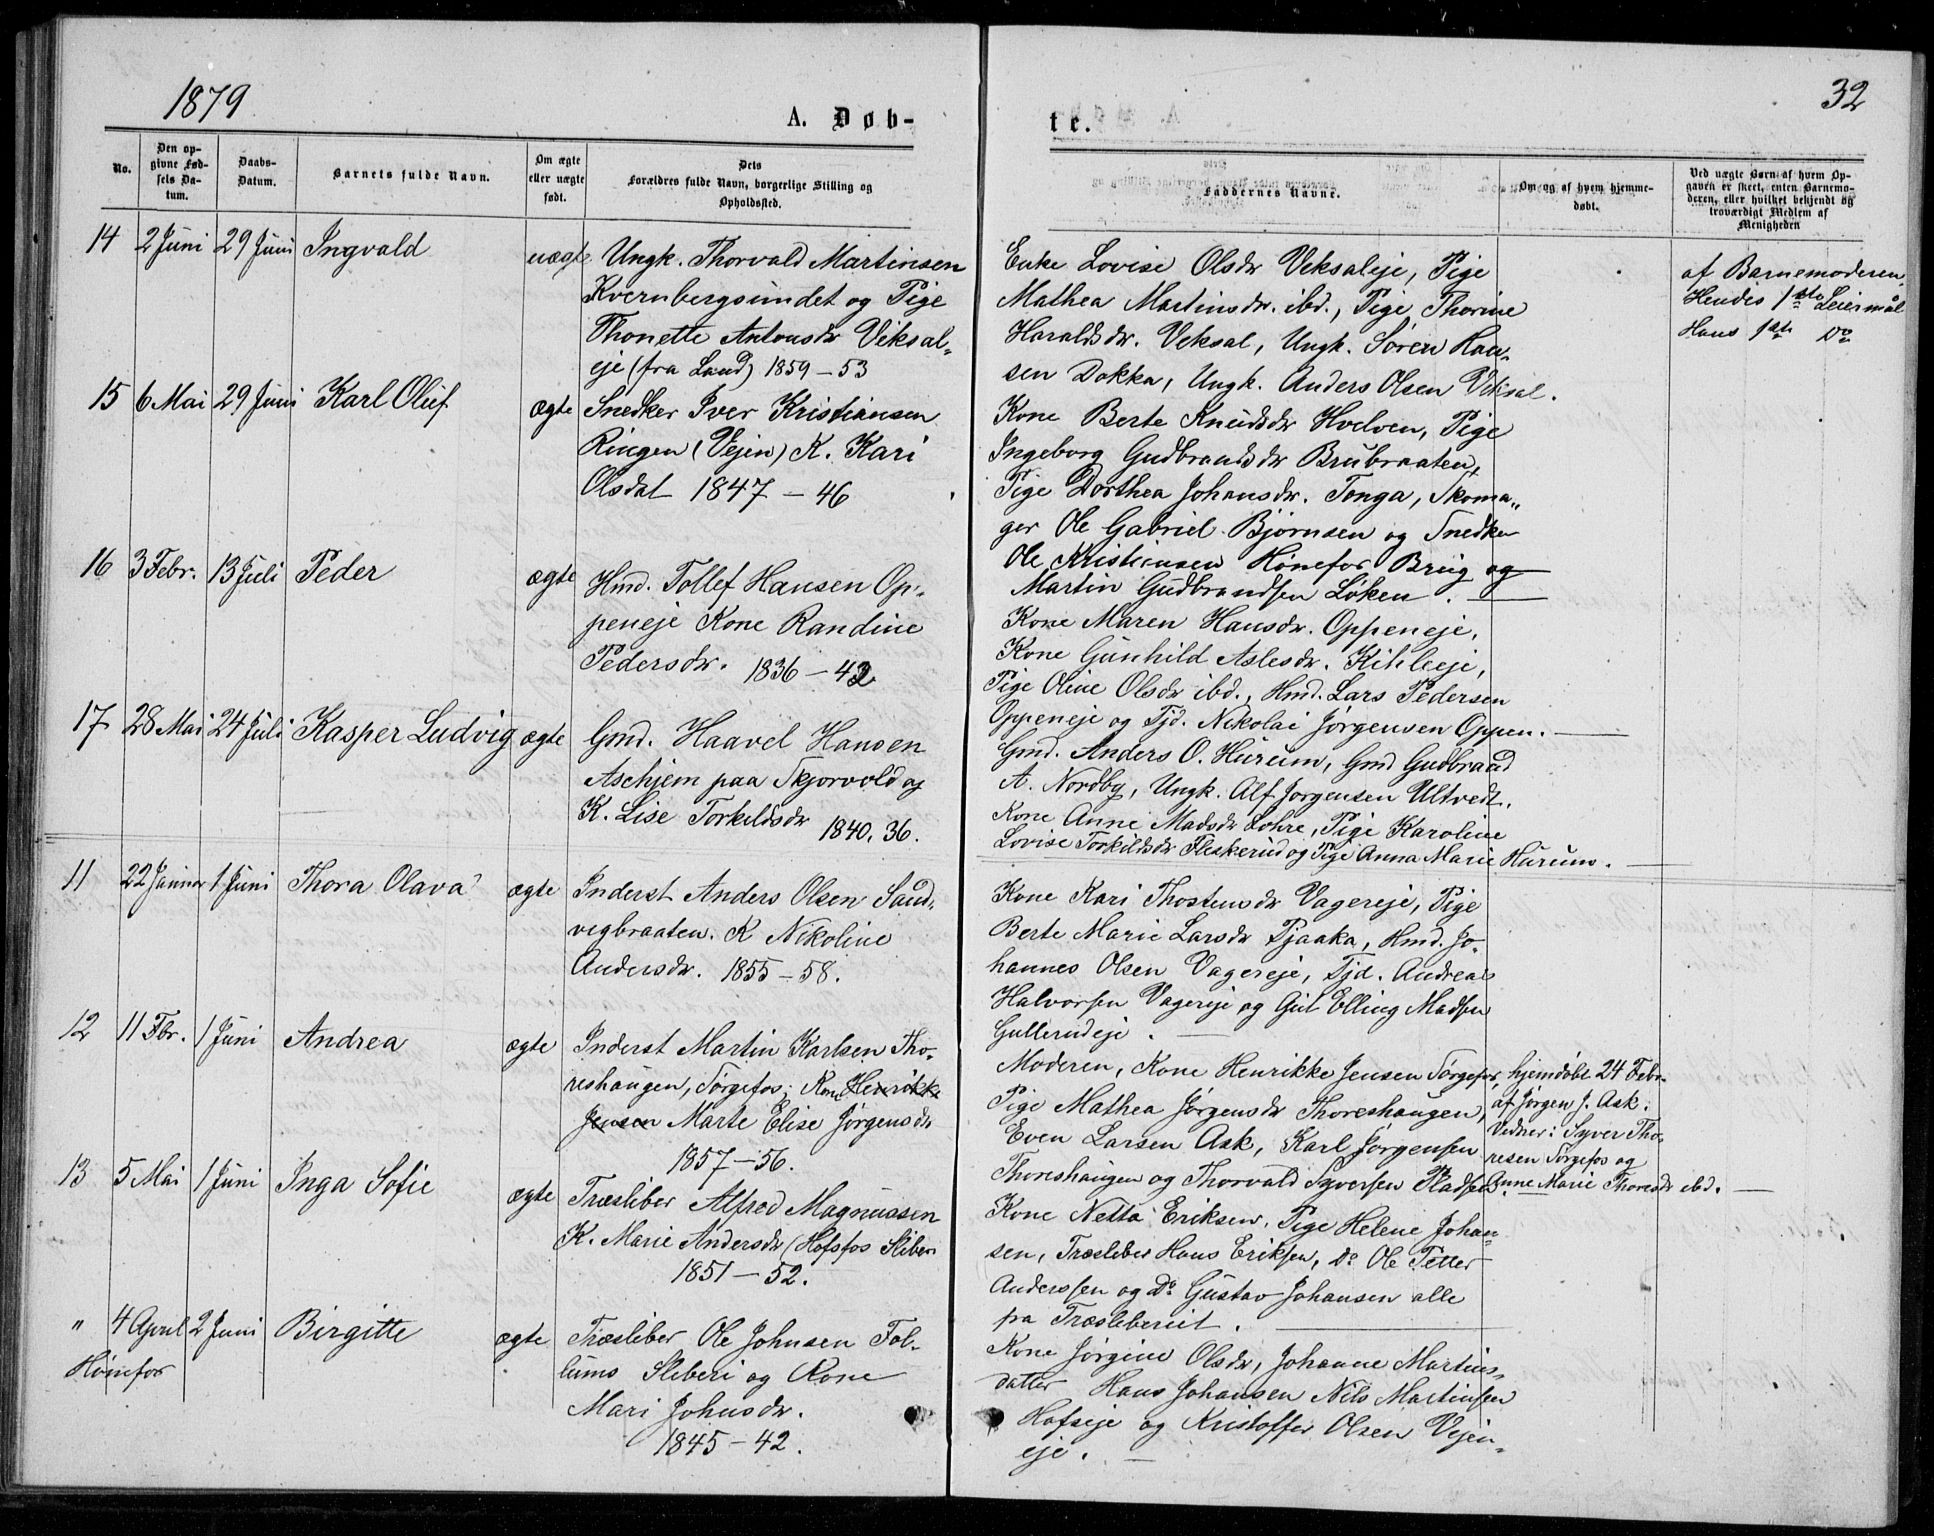 1879
32
A. Døb-
te.
No.
Den op-
givne Fød-
sels Da-
tum.
Daabs-
Datum.
Barnets fulde Navn.
Om ægte
eller uægte
født.
Dets
Forældres fulde Navn, borgerlige Stilling og
Opholdssted.
Faddernes Navne.
Om og af hvem hjemme-
døbt.
Ved uægte Børn af hvem Op-
gaven er skeet, enten Barnemo-
deren, eller hvilket bekjendt og
troværdigt Medlem af
Menigheden
14 2 Juni 29 Juni Ingvald uægte Ungk. Thorvald Martinsen
Kvernbergsundet og Pige
Thonette Antonsdr Veksal-
eje (fra Land) 1859-53
Enke Lovise Olsdr Veksaleje, Pige
Mathea Martinsdr. ibd., Pige Thorine
Haraldsdr. Veksal, Ungk. Søren Han-
sen Dokka, Ungk. Anders Olsen Veksal.
af Barnemoderen
Hendes 1ste Leiermål
Hans 1ste Do
15 6 Mai 29 Juni Karl Oluf ægte Snedker Iver Kristiansen
Ringen (Vejen) K. Kari
Olsdat 1847-46
Kone Berte Knudsdr Hvelven, Pige
Ingeborg Gudbrandsdr Brubraaten,
Pige Dorthea Johansdr. Tonga, Skoma-
ger Ole Gabriel Bjørnsen og Snedker
Ole Kristiansen Hønefos Brug og
Martin Gudbrandsen Løken.
16 3 Febr. 13 Juli Peder ægte Hmd. Tollef Hansen Op-
peneje Kone Randine
Pedersdr. 1836-42
Kone Maren Hansdr. Oppeneje,
Kone Gunhild Aslesdr. Kihleeje,
Pige Oline Olsdr ibd., Hmd. Lars Pedersen
Oppeneje og Tjd. Nikolai Jørgensen Oppen.
17 28 Mai 24 Juli Kasper Ludvig ægte Gmd. Haavel Hansen
Aschjem paa Skjorvold og
K. Lise Torkildsdr 1840, 36.
Gmd. Anders O. Hurum, Gmd Gudbrand
A. Nordby, Ungk. Alf Jørgensen Ultvedt,
Kone Anne Madsdr Lohre, Pige Karoline
Lovise Torkildsdr Fleskerud og Pige Anna Marie Hurum.
11 22 Januar 1 Juni Thora Olava ægte Inderst Anders Olsen Sand-
vigbraaten. K Nikoline
Andersdr. 1855-58.
Kone Kari Thostensdr Vagereje, Pige
Berte Marie Larsdr Pjaaka, Hmd. Jo-
hannes Olsen Vagereje, Tjd. Andreas
Halvorsen Vagereje og Gut Elling Madsen
Gullerudeje.
12 11 Fbr. 1 Juni Andrea ægte Inderst Martin Karlsen Tho-
reshaugen, Sørgefos; Kone Henrikke
Jensen Marte Elise Jørgensdr
1857-56.
Moderen, Kone Henrikke Jensen Sørgefos,
Pige Mathea Jørgensdr Thoreshaugen,
Even Larsen Ask, Karl Jørgensen
Thoreshaugen og Thorvald Syversen Pladsen.
hjemdøbt 24 Febr.
af Jørgen J. Ask.
Vidner: Syver Tho-
resen Sørgefos og
Anne Marie Thoresdr ibd.
13 5 Mai 1 Juni Inga Sofie ægte Træsliber Alfred Magnussen
K. Marie Andersdr (Hofsfos Sliberi
1851-52.
Kone Netta Eriksen, Pige Helene Johan-
sen, Træsliber Hans Eriksen, Do Ole Petter
Anderssen og Do Gustav Johansen alle
pa Træsliberiet.
" 4 April 2 Juni Birgitte ægte Træsliber Ole Johnsen Fol-
Hønefos
lums Sliberi og Kone
Mari Johnsdr.
1845-42.
Kone Jørgine Olsdr, Johanne Martins-
datter Hans Johansen Nils Martinsen
Hofseje og Kristoffer Olsen Vejen-
eje.